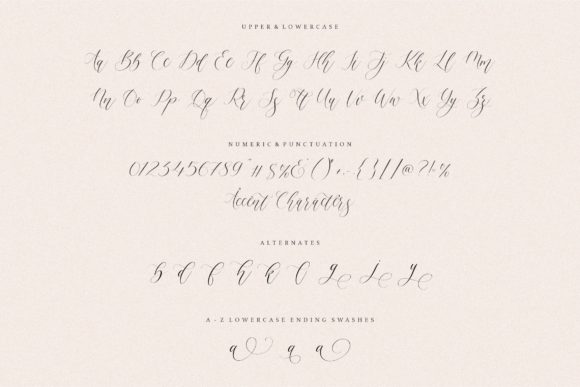 UPPER & LOWERCASE
Aa Bb Cc Dd Ee Ff Gg Hh Ii Jj Kk Ll Mm
Nn Oo Pp Qq Rr Ss Tt Uu Vv Ww Xx Yy Zz
NUMERIC & PUNCTUATION
0123456789 " # $ % & ' ( ) * + , - . { } / / @ ? ! : %
Accent Characters
ALTERNATES
b d f h k l g j y
A - Z LOWERCASE ENDING SWASHES
a a a